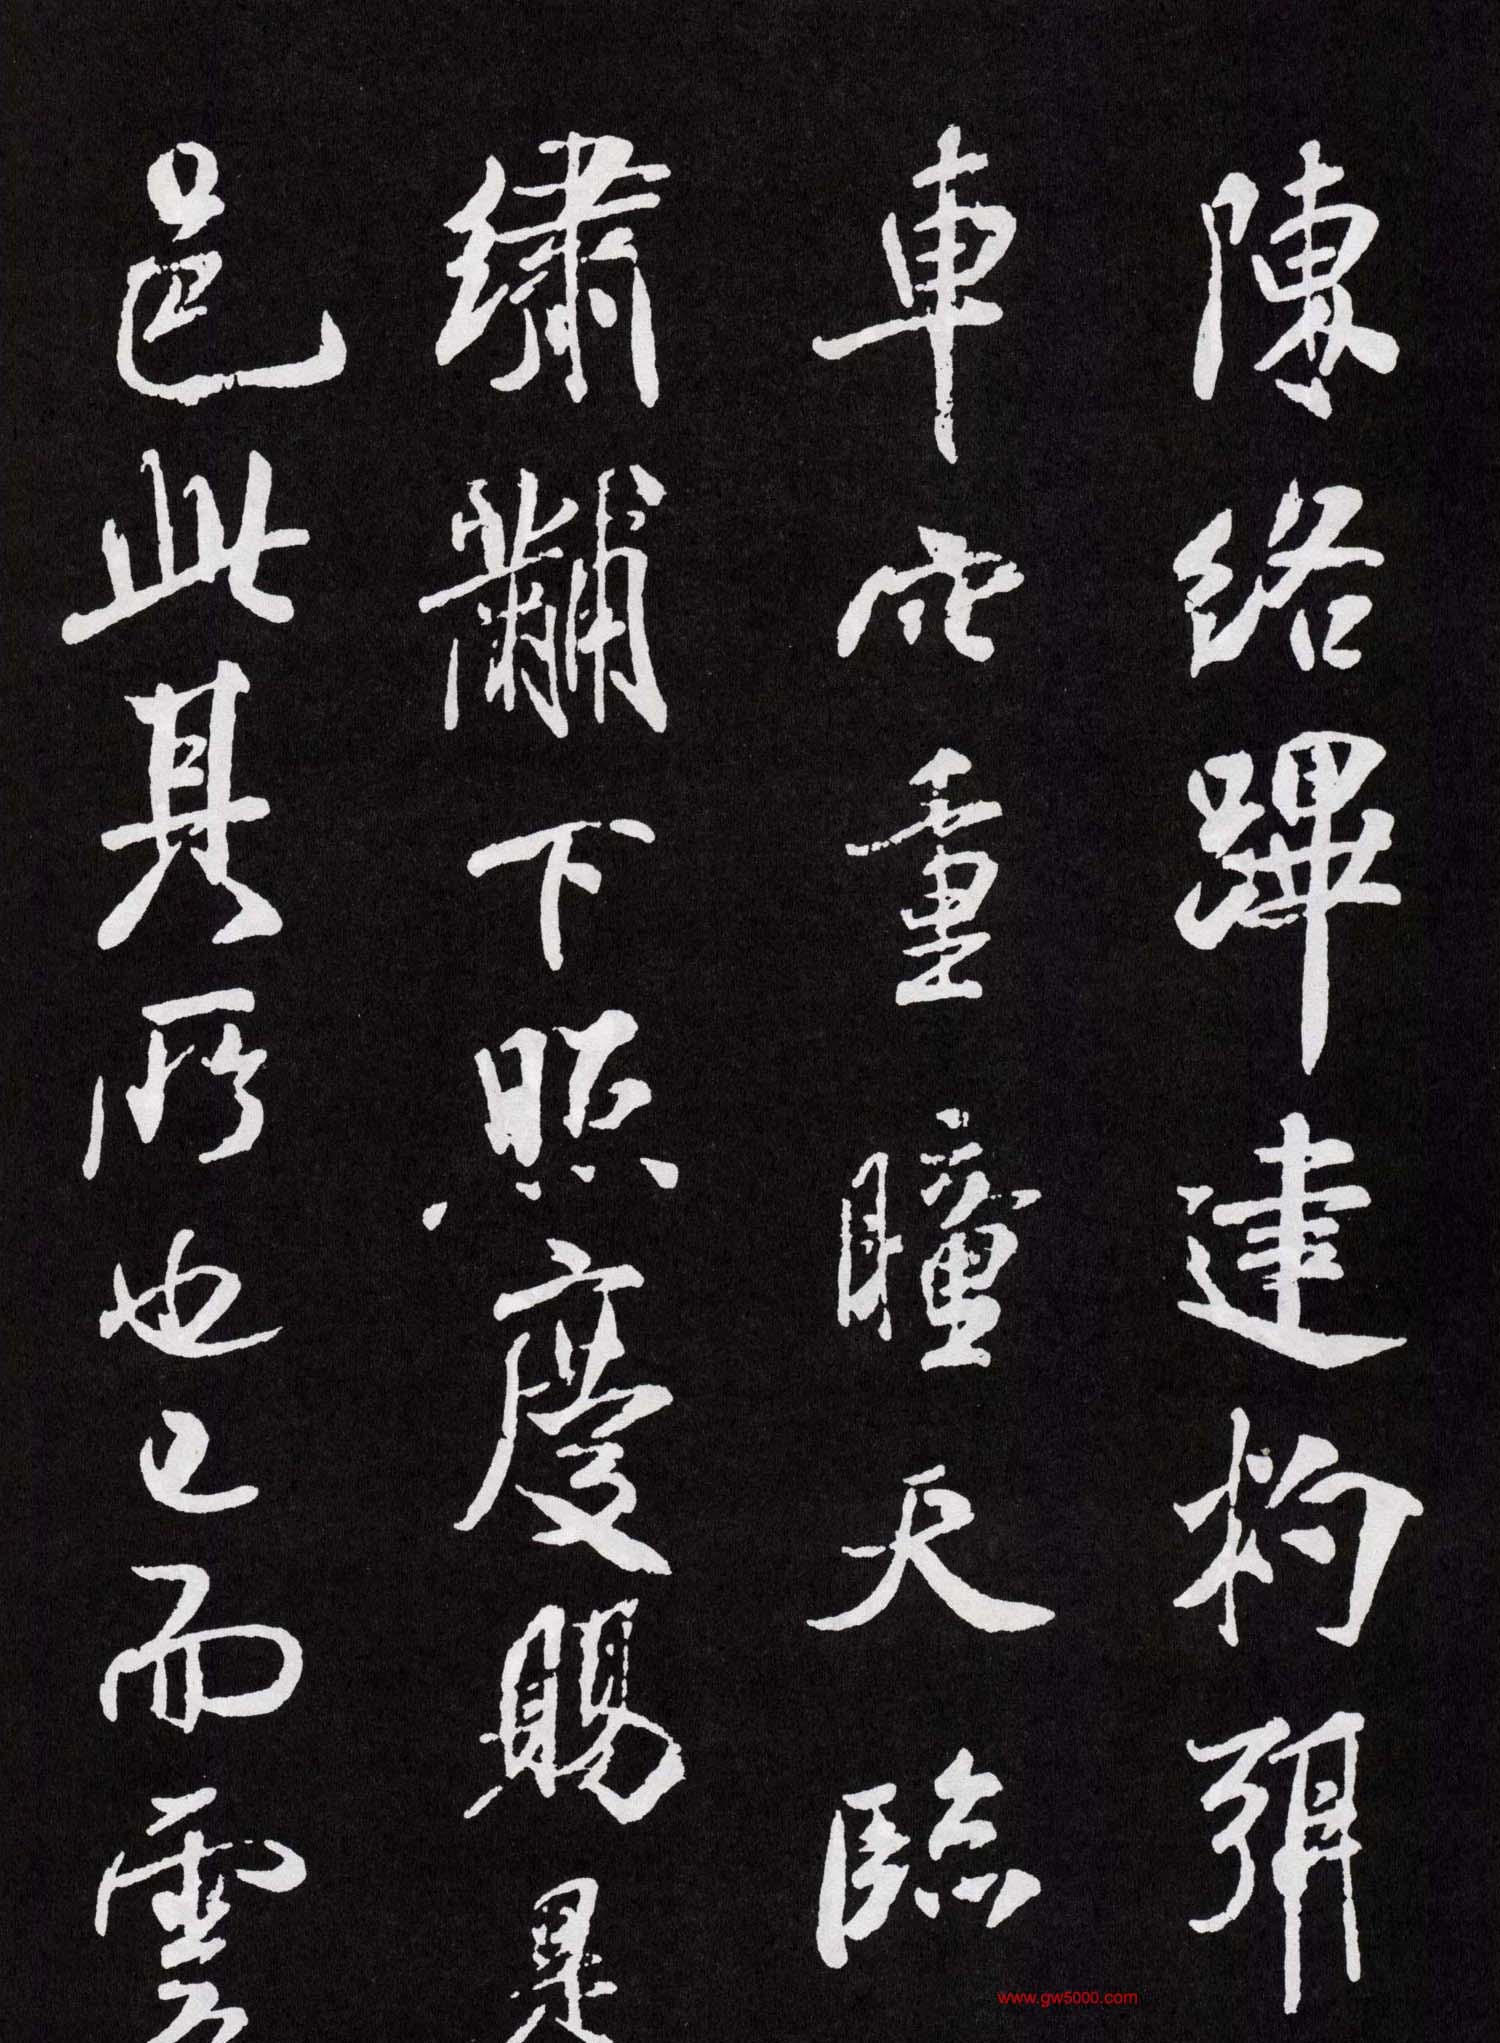 陳絡蹕建杓弭
車重瞳天臨
繡黼下照慶賜是
邑此其所也已而雲
www.gw5000.com